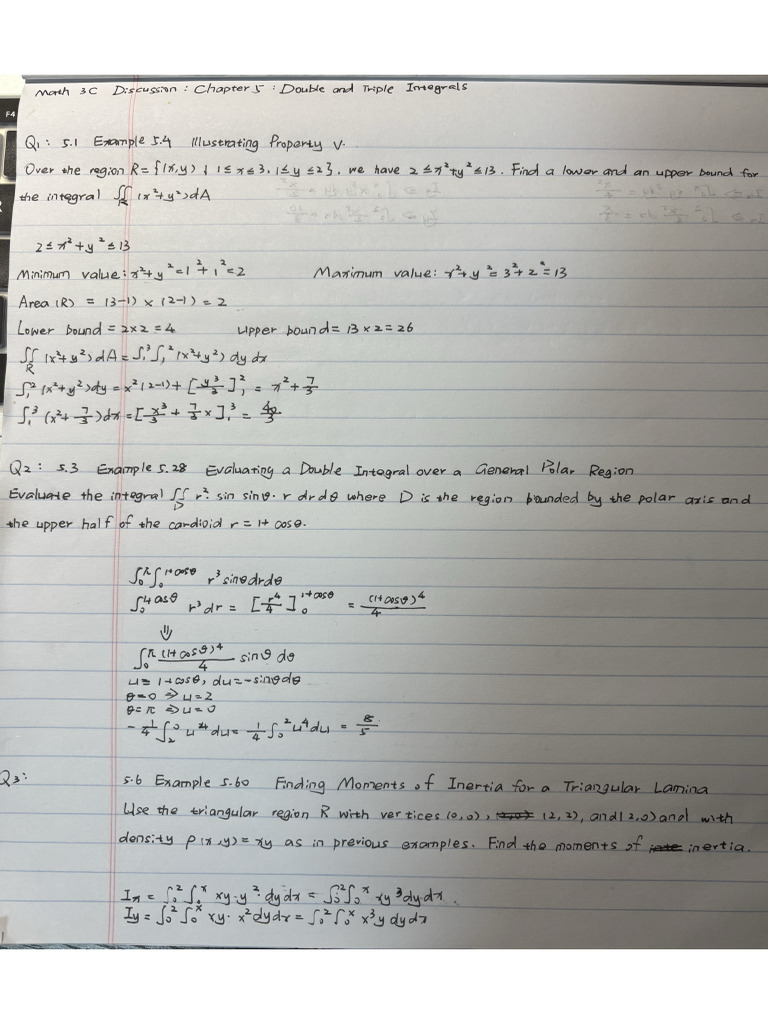 F4
Math 3C Discussion : Chapter 5 : Double and Triple Integrals
Q1 : 5.1 Example 5.4 Illustrating Property V.
Over the region R = {(x,y) | 1 ≤ x ≤ 3, 1 ≤ y ≤ 2}, we have 2 ≤ x² + y² ≤ 13. Find a lower and an upper bound for
the integral ∬_R (x² + y²) dA
2 ≤ x² + y² ≤ 13
Minimum value: x² + y² = 1² + 1² = 2 Maximum value: x² + y² = 3² + 2² = 13
Area (R) = (3-1) × (2-1) = 2
Lower bound = 2×2 = 4 upper bound = 13 × 2 = 26
∬_R (x² + y²) dA = ∫₁³ ∫₁² (x² + y²) dy dx
∫₁² (x² + y²) dy = x² (2-1) + [y³/3]₁² = x² + 7/3
∫₁³ (x² + 7/3) dx = [x³/3 + 7/3 x]₁³ = 40/3
Q2 : 5.3 Example 5.28 Evaluating a Double Integral over a General Polar Region
Evaluate the integral ∬_D r² sin sinθ · r dr dθ where D is the region bounded by the polar axis and
the upper half of the cardioid r = 1 + cosθ.
∫₀^π ∫₀^(1+cosθ) r³ sinθ dr dθ
∫₀^(1+cosθ) r³ dr = [r⁴/4]₀^(1+cosθ) = (1+cosθ)⁴/4
⇓
∫₀^π (1+cosθ)⁴/4 sinθ dθ
u = 1 + cosθ, du = -sinθ dθ
θ = 0 ⇒ u = 2
θ = π ⇒ u = 0
-1/4 ∫₂⁰ u⁴ du = 1/4 ∫₀² u⁴ du = 8/5
Q3 : 5.6 Example 5.60 Finding Moments of Inertia for a Triangular Lamina
Use the triangular region R with vertices (0,0), (2,2), and (2,0) and with
density ρ(x,y) = xy as in previous examples. Find the moments of inertia.
Ix = ∫₀² ∫₀ˣ xy · y² dy dx = ∫₀² ∫₀ˣ xy³ dy dx .
Iy = ∫₀² ∫₀ˣ xy · x² dy dx = ∫₀² ∫₀ˣ x³y dy dx